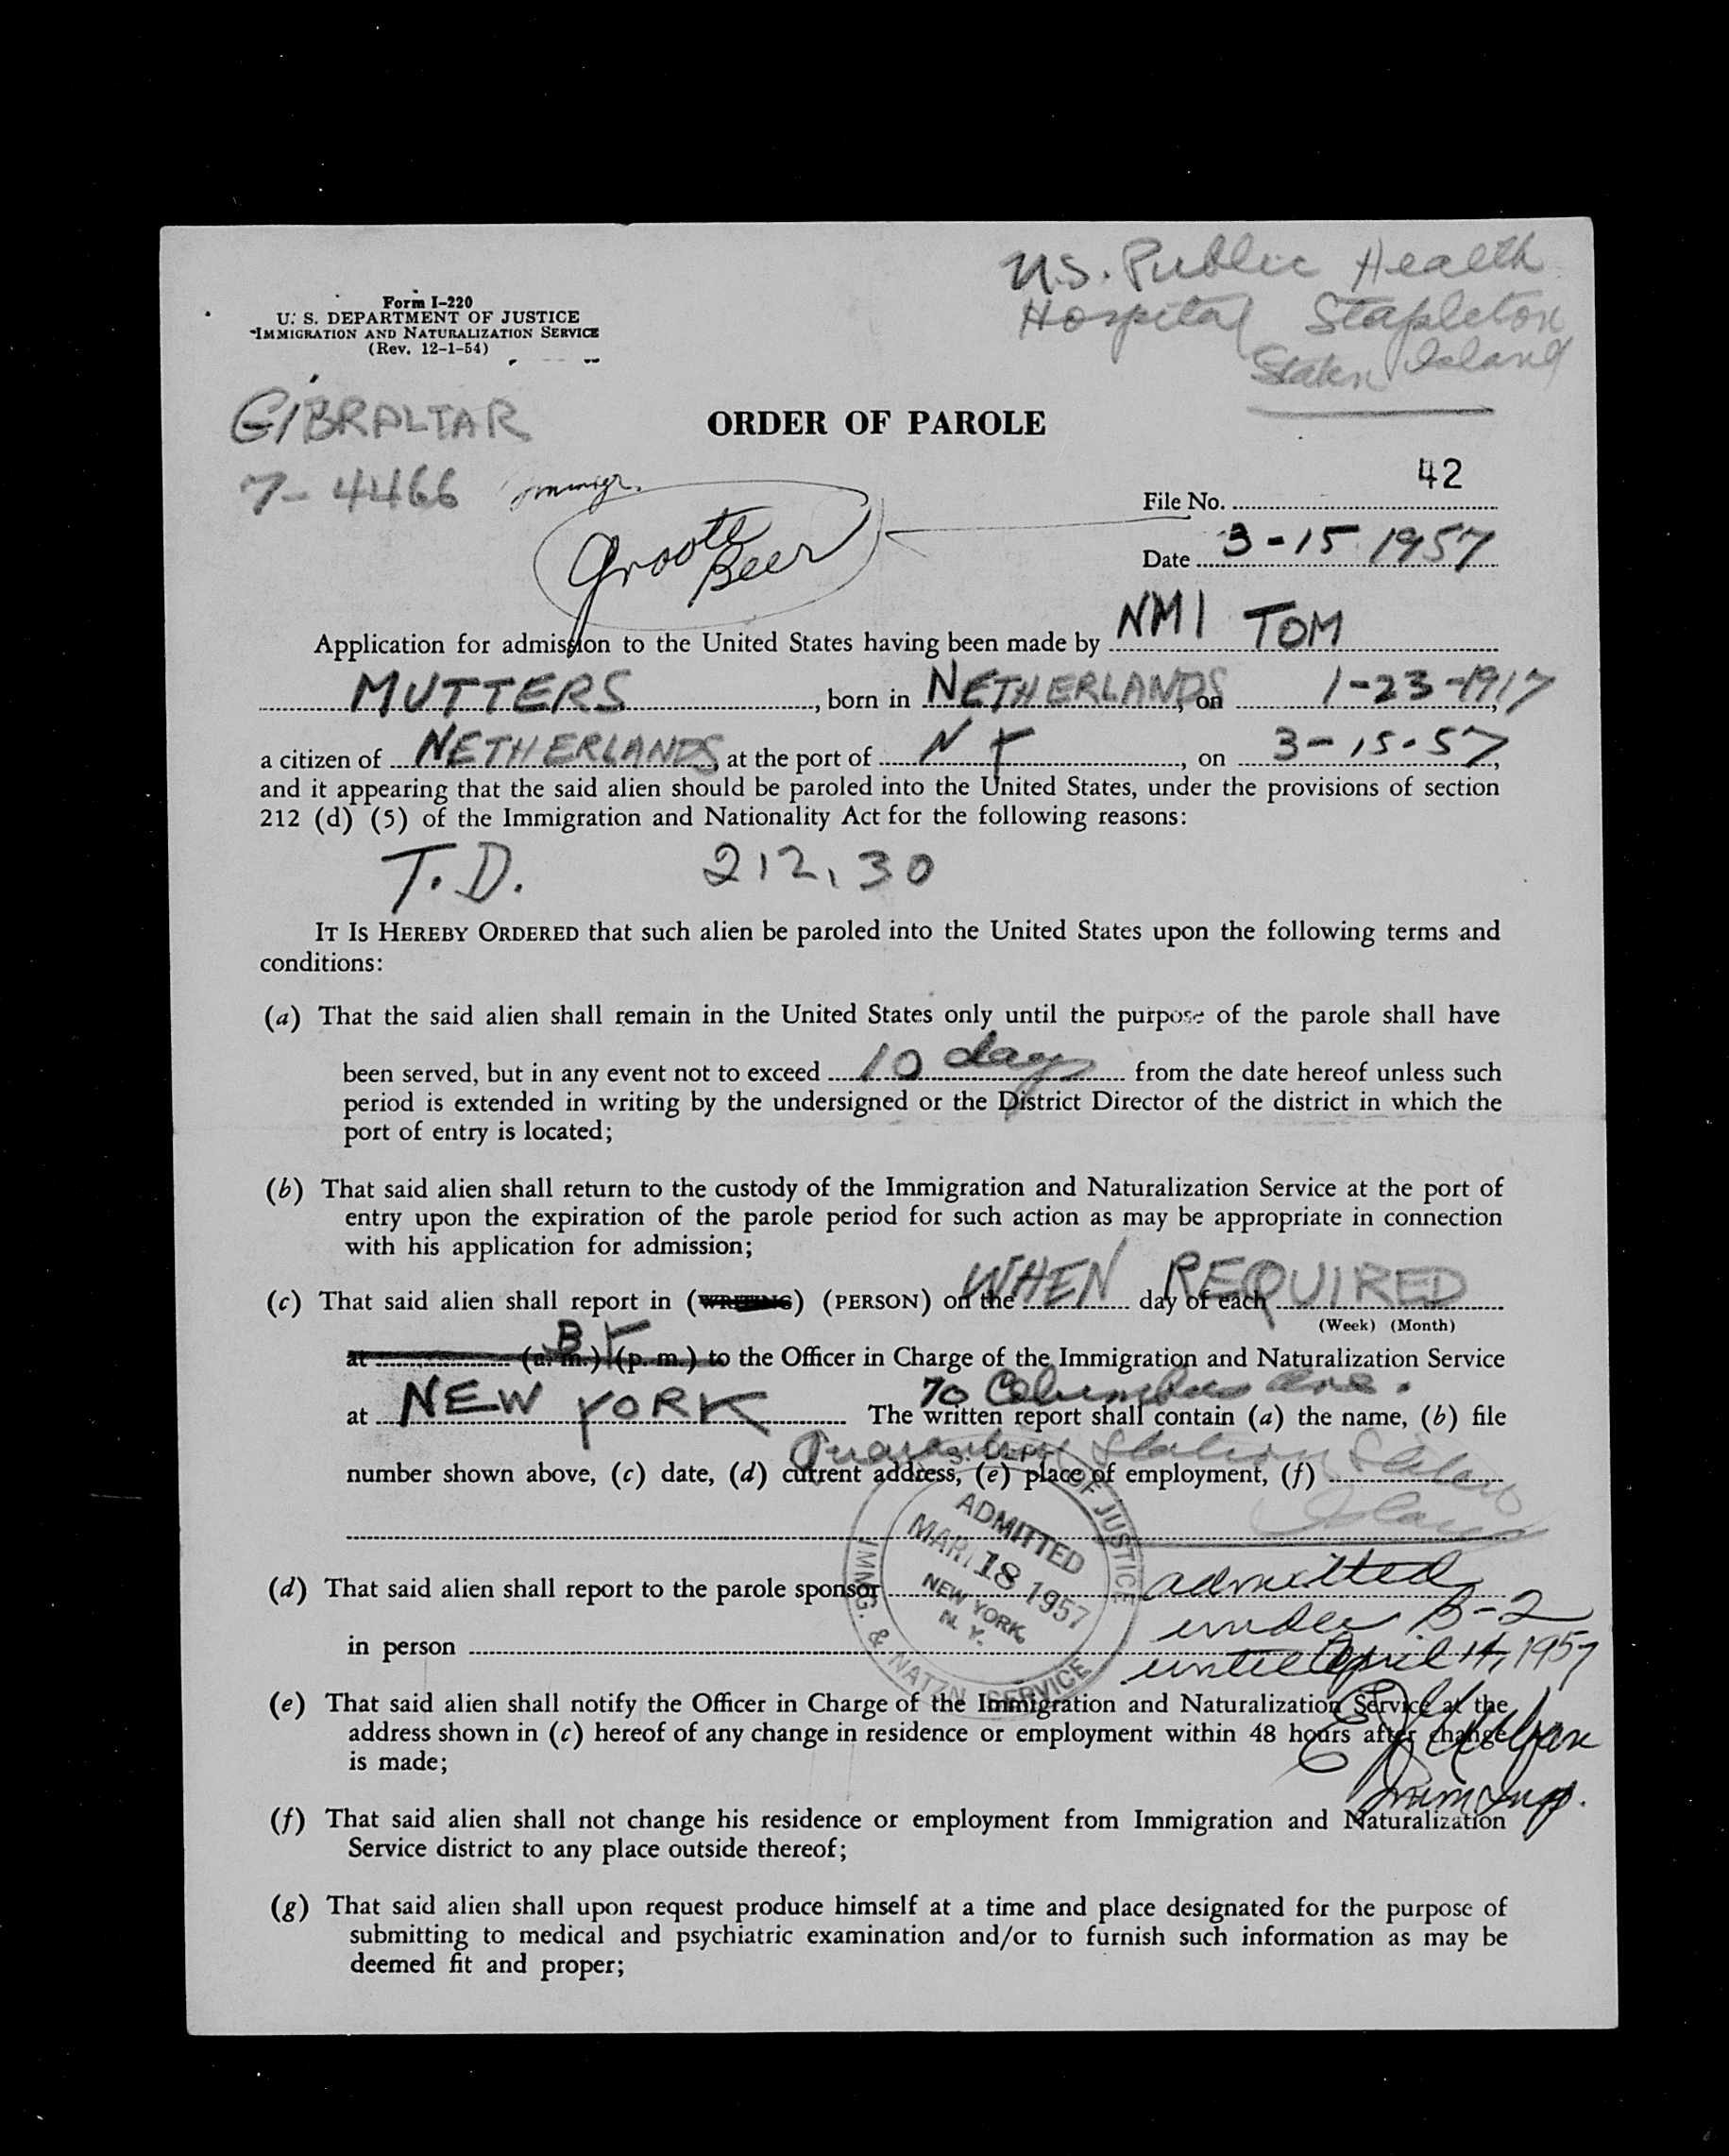 Form I-220
U. S. DEPARTMENT OF JUSTICE
IMMIGRATION AND NATURALIZATION SERVICE
(Rev. 12-1-54)
U.S. Public Health
Hospital Stapleton
Staten Island
GIBRALTAR
7-4466
ORDER OF PAROLE
immigr.
Groote
Beer
File No. 42
Date 3-15 1957
Application for admission to the United States having been made by NMI TOM
MUTTERS, born in NETHERLANDS, on 1-23-1917,
a citizen of NETHERLANDS, at the port of N Y, on 3-15-57,
and it appearing that the said alien should be paroled into the United States, under the provisions of section
212 (d) (5) of the Immigration and Nationality Act for the following reasons:
T.D. 212.30
IT IS HEREBY ORDERED that such alien be paroled into the United States upon the following terms and
conditions:
(a) That the said alien shall remain in the United States only until the purpose of the parole shall have
been served, but in any event not to exceed 10 days from the date hereof unless such
period is extended in writing by the undersigned or the District Director of the district in which the
port of entry is located;
(b) That said alien shall return to the custody of the Immigration and Naturalization Service at the port of
entry upon the expiration of the parole period for such action as may be appropriate in connection
with his application for admission;
(c) That said alien shall report in (WRITING) (PERSON) on the WHEN day of each REQUIRED
(Week) (Month)
at (a. m.) (p. m.) to the Officer in Charge of the Immigration and Naturalization Service
70 Columbus Ave.
at NEW YORK The written report shall contain (a) the name, (b) file
Quarantine Station Staten
number shown above, (c) date, (d) current address, (e) place of employment, (f)
Island
S. DEPT. OF JUSTICE
ADMITTED
MAR 18 1957
NEW YORK,
N. Y.
IMMG. & NATZN SERVICE
(d) That said alien shall report to the parole sponsor
in person
admitted
under B-2
until April 14, 1957
(e) That said alien shall notify the Officer in Charge of the Immigration and Naturalization Service at the
address shown in (c) hereof of any change in residence or employment within 48 hours after change
is made;
Imm Insp.
(f) That said alien shall not change his residence or employment from Immigration and Naturalization
Service district to any place outside thereof;
(g) That said alien shall upon request produce himself at a time and place designated for the purpose of
submitting to medical and psychiatric examination and/or to furnish such information as may be
deemed fit and proper;